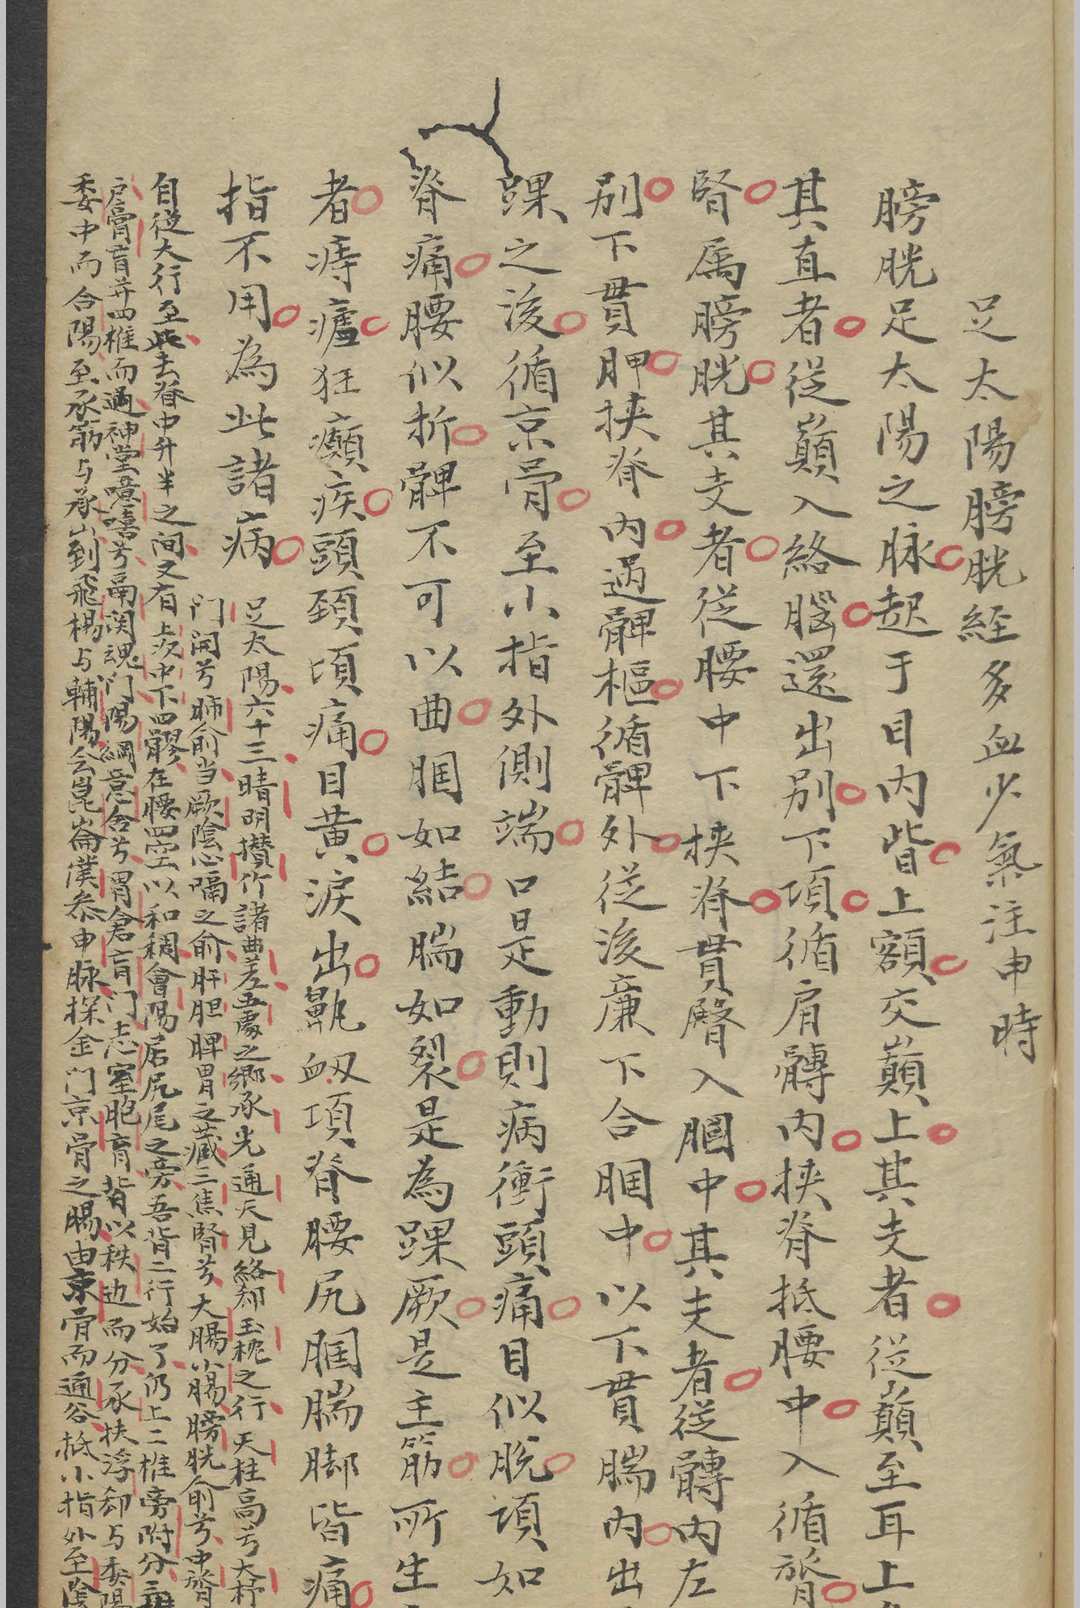 足太陽膀胱経多血少氣注申時
膀胱足太陽之脉起于目内眥上額交巔上其支者從巔至耳上
其直者從巔入絡腦還出別下項循肩髆内挟脊抵腰中入循膂
腎属膀胱其支者從腰中下挟脊貫臀入膕中其支者從髆内左
別下貫胛挟脊内過髀樞循髀外從後廉下合膕中以下貫腨内出
踝之後循京骨至小指外側端口是動則病衝頭痛目似脫項如
脊痛腰似折髀不可以曲膕如結腨如裂是為踝厥是主筋所生
者痔瘧狂癲疾頭頚項痛目黄淚出鼽衂項脊腰尻膕腨脚皆痛
指不用為此諸病
足太陽六十三睛明攅竹諸曲差五處之郷承光通天見絡郄玉枕之行天柱高兮大杼
門開兮肺俞当厥陰心膈之俞肝胆脾胃之藏三焦腎兮大腸小腸膀胱俞兮中膂
自從大行至此去脊中廾半之间又有上次中下四髎在腰四空以和稠會陽居尻尾之旁吾背二行始了仍上二椎旁附分三椎
户膏肓并四椎而過神堂噫嘻兮鬲関魂门陽綱意舍兮胃倉肓门志室胞肓背以秩边而分承扶浮郄与委陽
委中而合陽至承筋与承山到飛揚与輔陽会崑崙僕参申脉探金门京骨之腸由京骨而通谷抵小指外至陰